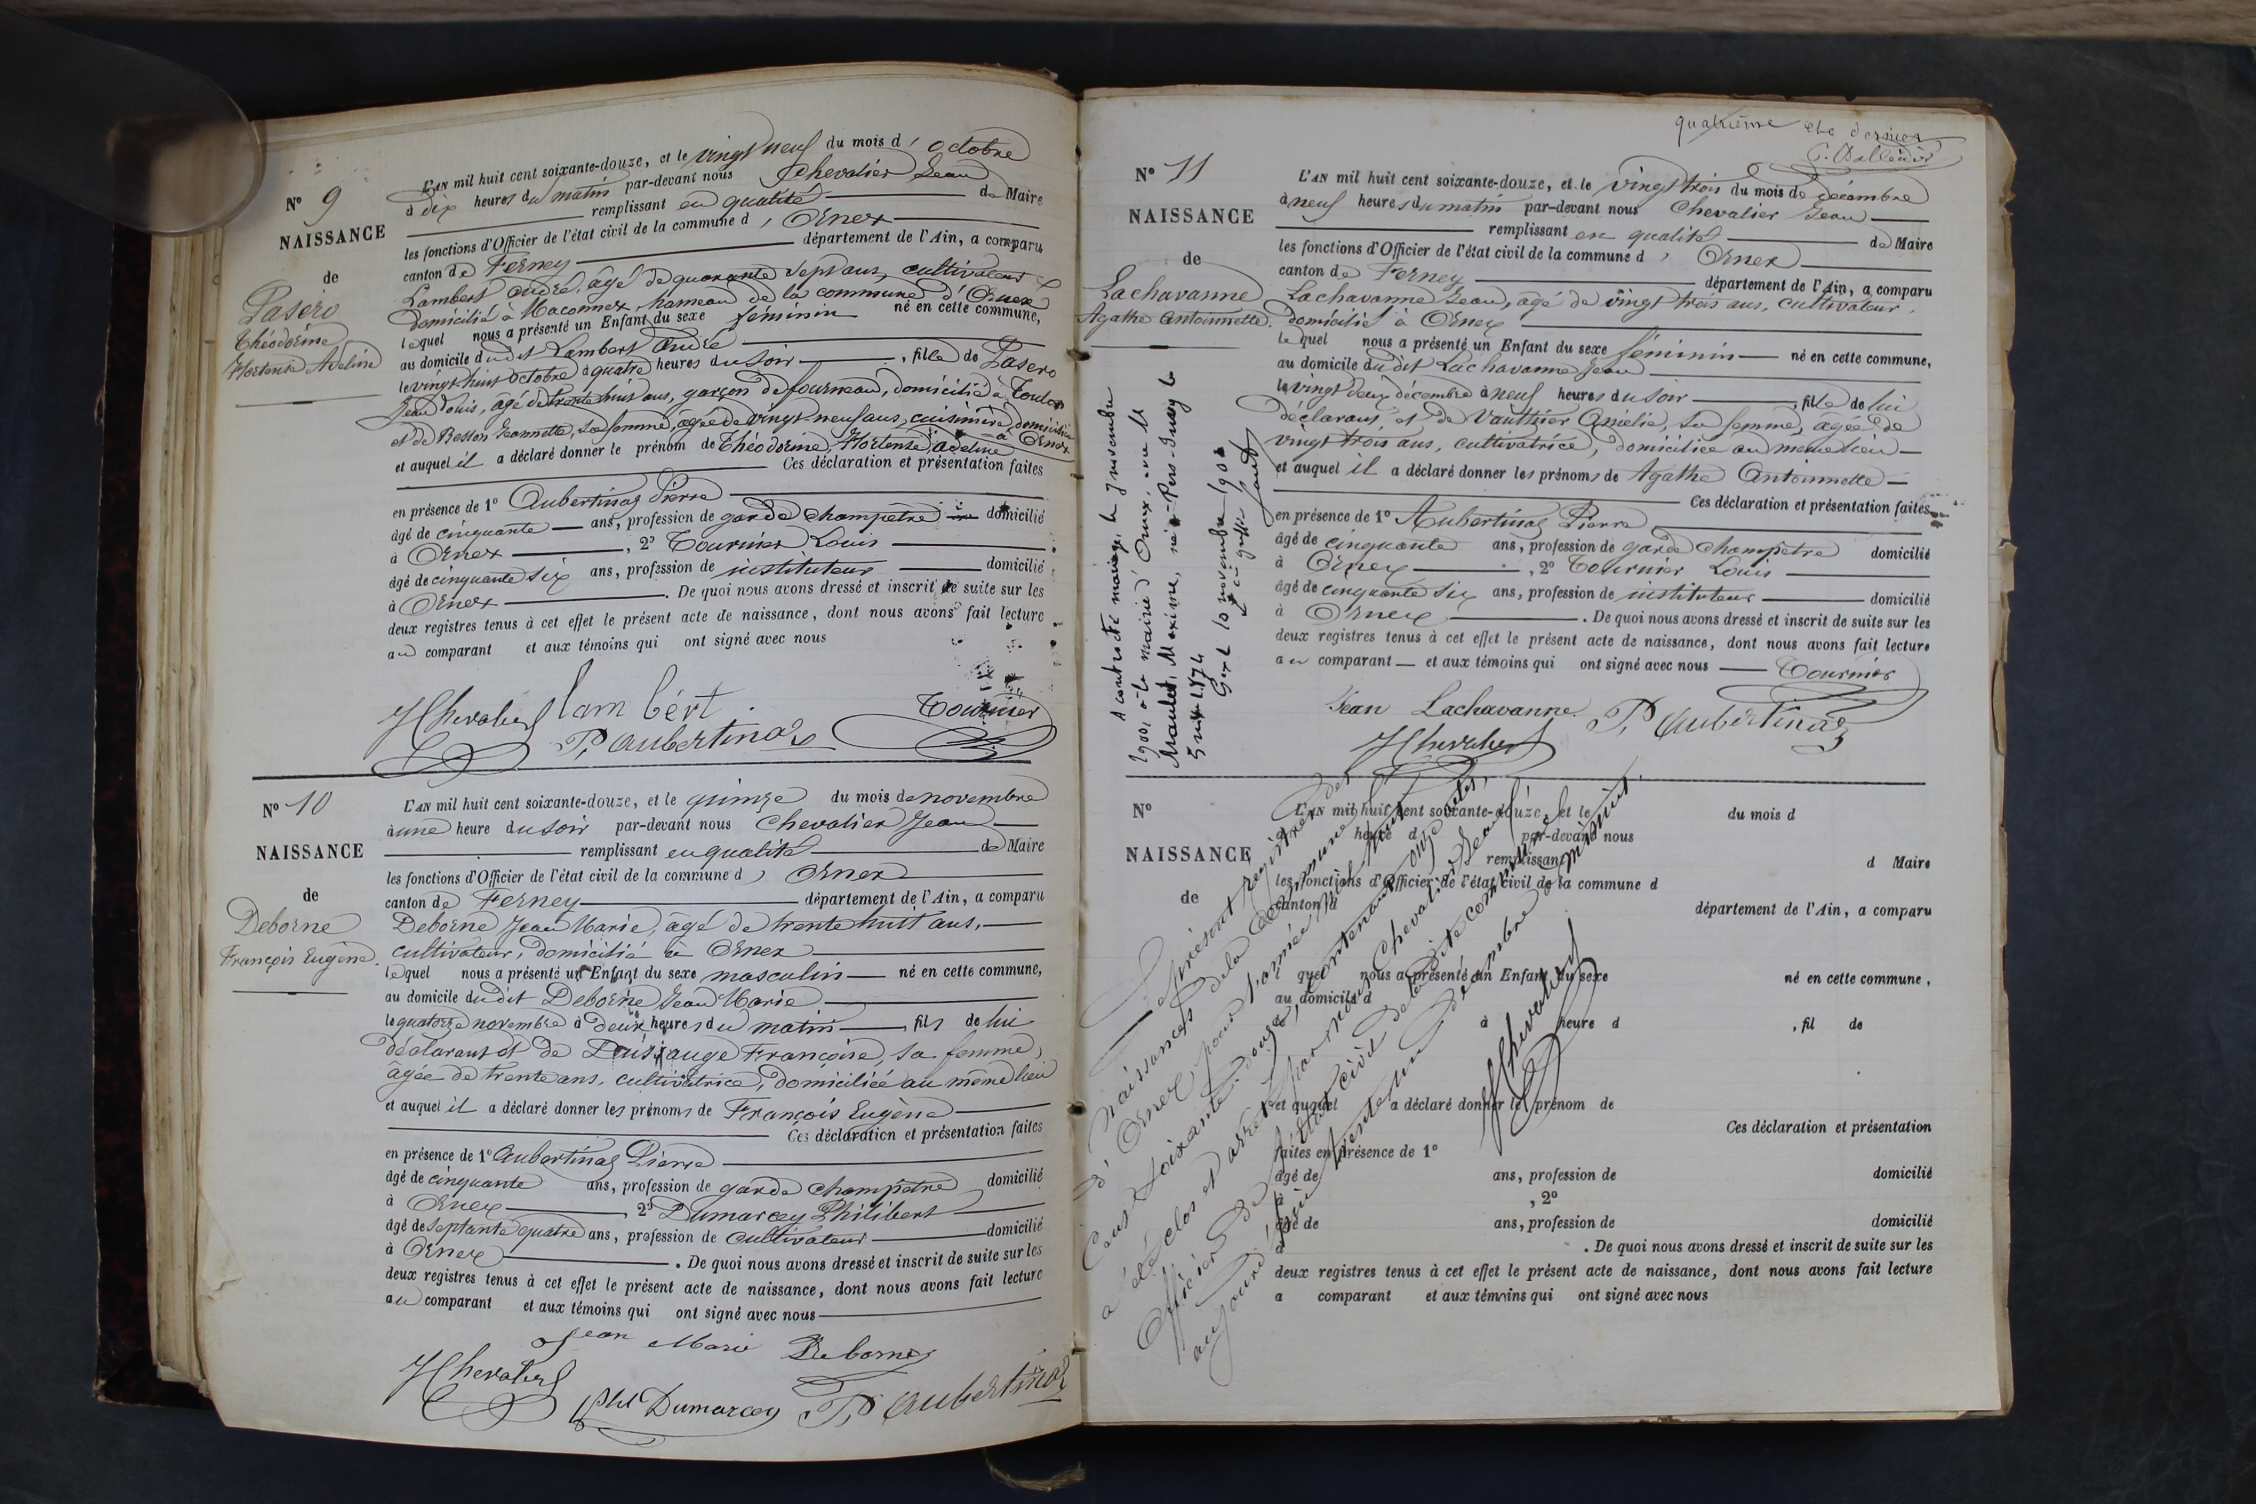 N° 9
NAISSANCE
de
Pasero
Théodorine
Hortense Adeline
L'AN mil huit cent soixante-douze, et le vingt neuf du mois d'octobre
à dix heures du matin par-devant nous Chevalier Jean
remplissant en qualité de Maire
les fonctions d'Officier de l'état civil de la commune d'Ornex
canton de Ferney département de l'Ain, a comparu
Lambert André, âgé de quarante sept ans, cultivateur
domicilié à Maconnex hameau de la commune d'Ornex
lequel nous a présenté un Enfant du sexe féminin né en cette commune,
au domicile dudit Lambert André
le vingt huit octobre à quatre heures du soir , fille de Pasero
Jean Louis, âgé de trente huit ans, garçon de fourneau, domicilié à Toulon
et de Besson Jeannette, sa femme, âgée de vingt-neuf ans, cuisinière domiciliée
à Ornex
et auquel il a déclaré donner le prénom de Théodorine, Hortense, Adeline
Ces déclaration et présentation faites
en présence de 1° Aubertinaz Pierre
âgé de cinquante ans, profession de garde champêtre domicilié
à Ornex , 2° Tournier Louis
âgé de cinquante six ans, profession de instituteur domicilié
à Ornex . De quoi nous avons dressé et inscrit de suite sur les
deux registres tenus à cet effet le présent acte de naissance, dont nous avons fait lecture
au comparant et aux témoins qui ont signé avec nous
JChevalier lambért Tournier
P. Aubertinaz
N° 10
NAISSANCE
de
Deborne
François Eugène.
L'AN mil huit cent soixante-douze, et le quinze du mois de novembre
à une heure du soir par-devant nous Chevalier Jean
remplissant en qualité de Maire
les fonctions d'Officier de l'état civil de la commune d'Ornex
canton de Ferney département de l'Ain, a comparu
Deborne Jean Marie, âgé de trente huit ans,
cultivateur, domicilié à Ornex
lequel nous a présenté un Enfant du sexe masculin né en cette commune,
au domicile dudit Deborne Jean Marie
le quatorze novembre à deux heures du matin , fils de lui
déclarant et de Françoise, sa femme,
âgée de trente ans, cultivatrice, domiciliée au même lieu
et auquel il a déclaré donner les prénoms de François Eugène
Ces déclaration et présentation faites
en présence de 1° Aubertinaz Pierre
âgé de cinquante ans, profession de garde champêtre domicilié
à Ornex , 2° Dumarcey Philibert
âgé de septante quatre ans, profession de cultivateur domicilié
à Ornex . De quoi nous avons dressé et inscrit de suite sur les
deux registres tenus à cet effet le présent acte de naissance, dont nous avons fait lecture
au comparant et aux témoins qui ont signé avec nous
Jean Marie Deborne
JChevalier Pht Dumarcey P. Aubertinaz
quatrième et dernier
N° 11
NAISSANCE
de
Lachavanne
Agathe Antoinnette.
L'AN mil huit cent soixante-douze, et le vingt trois du mois de décembre
à neuf heures du matin par-devant nous Chevalier Jean
remplissant en qualité de Maire
les fonctions d'Officier de l'état civil de la commune d'Ornex
canton de Ferney département de l'Ain, a comparu
Lachavanne Jean, âgé de vingt trois ans, cultivateur,
domicilié à Ornex
lequel nous a présenté un Enfant du sexe féminin né en cette commune,
au domicile dudit Lachavanne Jean
le vingt deux décembre à neuf heures du soir , fille de lui
déclarant, et de Vauthier Amélie, sa femme, âgée de
vingt trois ans, cultivatrice, domiciliée au même lieu
et auquel il a déclaré donner les prénoms de Agathe Antoinnette
Ces déclaration et présentation faites
en présence de 1° Aubertinaz Pierre
âgé de cinquante ans, profession de garde champêtre domicilié
à Ornex , 2° Tournier Louis
âgé de cinquante six ans, profession de instituteur domicilié
à Ornex . De quoi nous avons dressé et inscrit de suite sur les
deux registres tenus à cet effet le présent acte de naissance, dont nous avons fait lecture
au comparant et aux témoins qui ont signé avec nous Tournier
Jean Lachavanne P. Aubertinaz
JChevalier
A contracté mariage le 7 novembre
1900, à la mairie d'Ornex, avec M
Maulet, Maxime, né à Pers-Jussy le
5 mai 1874
Gex le 10 novembre 1900
Le greffier
N°
NAISSANCE
de
L'AN mil huit cent soixante-douze, et le du mois d
à heure d par-devant nous
remplissant d Maire
les fonctions d'Officier de l'état civil de la commune d
canton d
département de l'Ain, a comparu
quel nous a présenté un Enfant du sexe né en cette commune,
au domicile d
le à heure d , fil de
et auquel a déclaré donner le prénom de
Ces déclaration et présentation
faites en présence de 1°
âgé de ans, profession de domicilié
à , 2°
âgé de ans, profession de domicilié
à . De quoi nous avons dressé et inscrit de suite sur les
deux registres tenus à cet effet le présent acte de naissance, dont nous avons fait lecture
a comparant et aux témoins qui ont signé avec nous
Le présent registre des
naissances de la commune
d'Ornex pour l'année mil huit
cent soixante-douze, contenant onze actes,
a été clos et arrêté par nous Chevalier Jean
Officier de l'état civil de la dite commune
aujourd'hui trente un décembre à minuit.
JChevalier